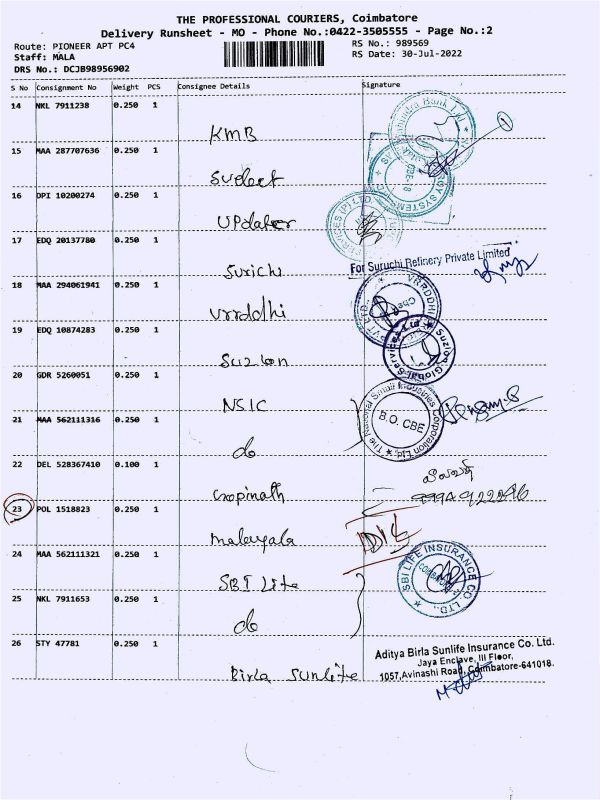 THE PROFESSIONAL COURIERS, Coimbatore
Delivery Runsheet - MO - Phone No.:0422-3505555 - Page No.:2
Route: PIONEER APT PC4 RS No.: 989569
Staff: MALA RS Date: 30-Jul-2022
DRS No.: DCJB98956902
S No Consignment No Weight PCS Consignee Details Signature
14 NKL 7911238 0.250 1
KMB
15 MAA 287707636 0.250 1
16 DPI 10200274 0.250 1
Updater
17 EDQ 20137780 0.250 1
Surichi
For Suruchi Refinery Private Limited
18 MAA 294061941 0.250 1
Vrrddhi
VRRDDHI
19 EDQ 10874283 0.250 1
Suzlon
Suzlon Global Services Ltd.
20 GDR 5260051 0.250 1
NSIC
The National Small Industries Corporation Ltd.
B.O. CBE
21 MAA 562111316 0.250 1
do
22 DEL 528367410 0.100 1
Gopinath
23 POL 1518823 0.250 1
Malayala
24 MAA 562111321 0.250 1
SBI Life
SBI LIFE INSURANCE CO. LTD.,
25 NKL 7911653 0.250 1
do
26 STY 47781 0.250 1
Birla Sunlife
Aditya Birla Sunlife Insurance Co. Ltd.
Jaya Enclave, III Floor,
1057,Avinashi Road, Coimbatore-641018.